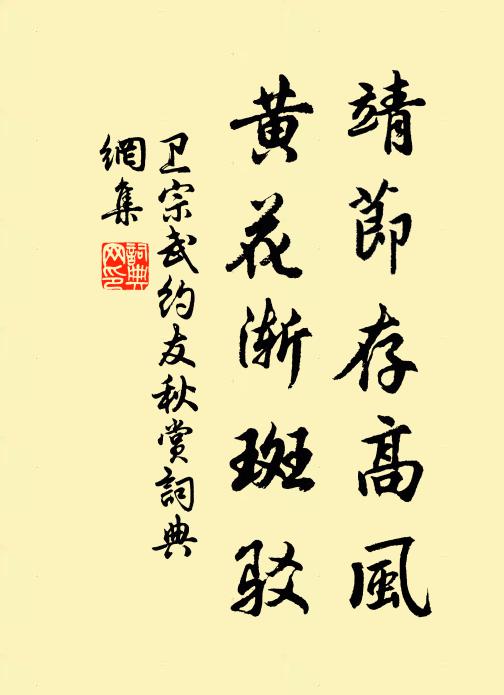 靖節存高風
黄花渐斑驳
卫宗武约友秋赏詞典
網集
詞典
网印